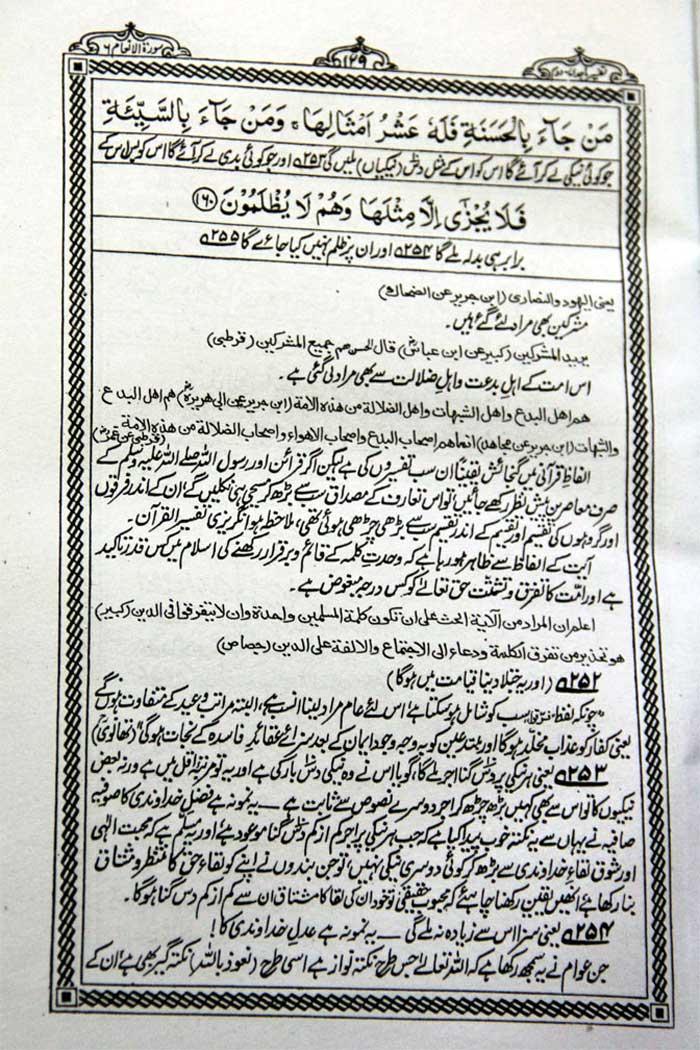 سورة الانعام ٦
١٢٩
مَنْ جَآءَ بِالْحَسَنَةِ فَلَهٗ عَشْرُ اَمْثَالِهَا ۚ وَمَنْ جَآءَ بِالسَّيِّئَةِ
جو کوئی نیکی لے کر آئے گا اس کو اس کے مثل دس (نیکیاں) ملیں گی ۲۵۳ اور جو کوئی بدی لے کر آئے گا اس کو بس اس کے
فَلَا يُجْزٰٓى اِلَّا مِثْلَهَا وَهُمْ لَا يُظْلَمُوْنَ ﴿١٦٠﴾
برابر ہی بدلہ ملے گا ۲۵۴ اور ان پر ظلم نہیں کیا جائے گا ۲۵۵
یعنی الیهود والنصاری (ابن جریر عن الضحاك)
مشرکین بھی مراد لئے گئے ہیں۔
یرید المشرکین (کبیر عن ابن عباسؓ) قال الحسن هم جمیع المشرکین (قرطبی)
اس امت کے اہلِ بدعت و اہلِ ضلالت سے بھی مراد لی گئی ہے۔
هم اهل البدع واهل الشبهات واهل الضلالة من هذه الامة (ابن جریر عن ابی هریرةؓ) هم اهل البدع
والشبهات (ابن جریر عن مجاهد) انما هم اصحاب البدع واصحاب الاهواء واصحاب الضلالة من هذه الامة (قرطبی عن عمرؓ)
الفاظِ قرآنی میں گنجائش یقیناً ان سب تفسیروں کی ہے لیکن اگر قرائن اور رسول اللہ صلے اللہ علیہ وسلم کے
صرف معاصرین پیش نظر رکھے جائیں، تو اس تعارف کے مصداق سب سے بڑھ کر مسیحی ہی نکلیں گے، ان کے اندر فرقوں
اور گروہوں کی تقسیم اور تقسیم کے اندر تقسیم سب سے بڑھی چڑھی ہوئی تھی، ملاحظہ ہو انگریزی تفسیر القرآن۔
آیت کے الفاظ سے ظاہر ہو رہا ہے کہ وحدتِ کلمہ کے قائم و برقرار رکھنے کی اسلام میں کس قدر تاکید
ہے اور امّت کا تفرق و تشتت حق تعالےٰ کو کس درجہ مبغوض ہے۔
اعلم ان المراد من الآیة الحث علی ان تکون کلمة المسلمین واحدة وان لا یتفرقوا فی الدین (کبیر)
هو تحذیر من تفرق الکلمة ودعاء الی الاجتماع والالفة علی الدین (جصاص)
۲۵۲ (اور یہ جتلا دینا قیامت میں ہوگا)
چونکہ لفظ فرّقوا سب کو شامل ہو سکتا ہے، اس لئے عام مراد لینا انسب ہے، البتہ مراتب وعید کے متفاوت ہوں گے
یعنی کفار کو عذاب مخلّد ہوگا اور مبتدعین کو بہ وجہ وجودِ ایمان کے بعد سزائے عقائدِ فاسدہ کے نجات ہوگی" (تھانویؒ)
۲۵۳ یعنی ہر نیکی پر دس گنا اجر ملے گا، گویا اس نے وہ نیکی دس بار کی ہے اور یہ تو مرتبۂ اقل میں ہے ورنہ بعض
نیکیوں کا تو اس سے بھی کہیں بڑھ چڑھ کر اجر دوسرے نصوص سے ثابت ہے — یہ نمونہ ہے فضلِ خداوندی کا صوفیہ
صافیہ نے یہاں سے یہ نکتہ خوب پیدا کیا ہے کہ جب ہر نیکی پر اجر کم از کم دس گنا موعود ہے اور یہ مسلّم ہے کہ محبت الٰہی
اور شوقِ لقاءِ خداوندی سے بڑھ کر کوئی دوسری نیکی نہیں، تو جن بندوں نے اپنے کو لقاءِ حق کا منتظر و مشتاق
بنا رکھا ہے انھیں یقین رکھنا چاہئے کہ محبوب حقیقی تو خود ان کی لقا کا مشتاق ان سے کم از کم دس گنا ہوگا۔
۲۵۴ یعنی سزا اس سے زیادہ نہ ملے گی — یہ نمونہ ہے عدلِ خداوندی کا!
جن عوام نے یہ سمجھ رکھا ہے کہ اللہ تعالےٰ جس طرح نکتہ نواز ہے اسی طرح (نعوذ باللہ) نکتہ گیر بھی ہے، ان کے